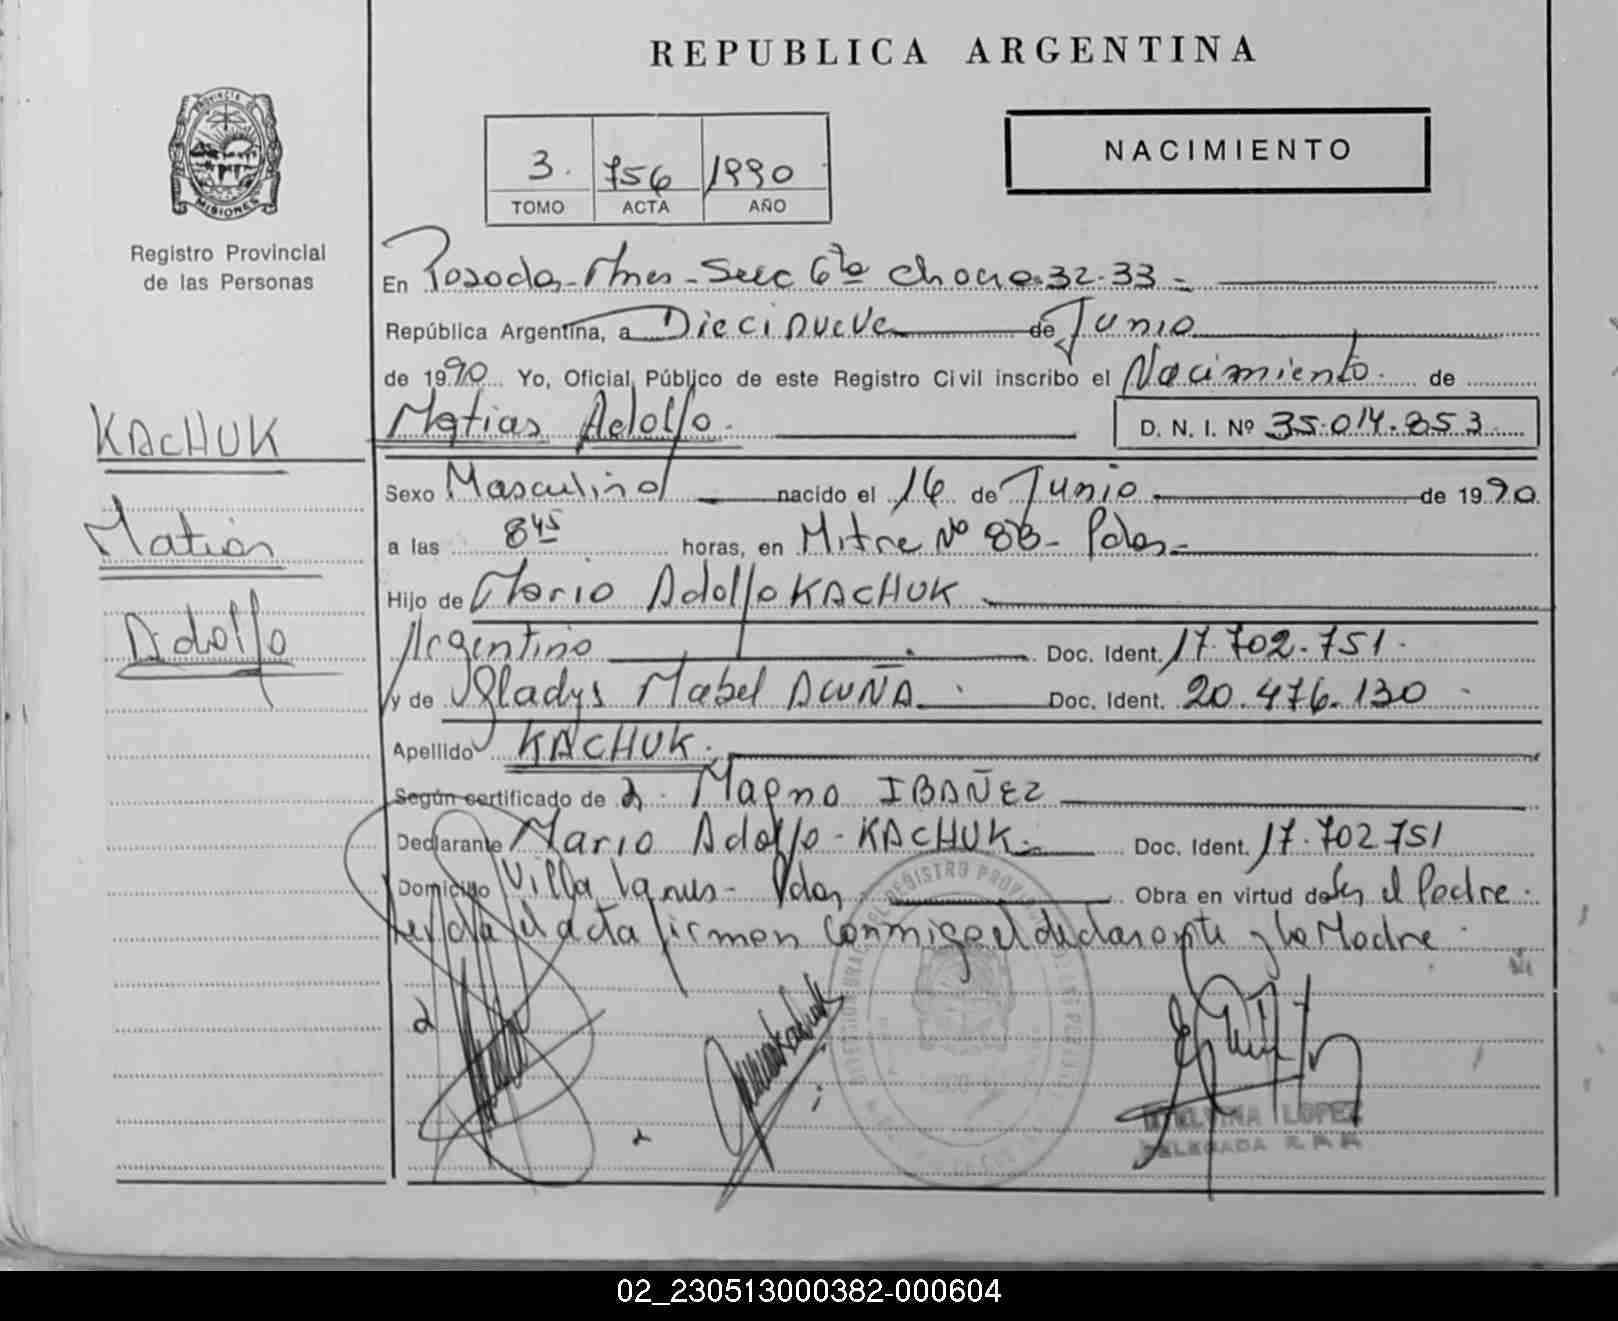 REPUBLICA ARGENTINA
PROVINCIA DE
MISIONES
Registro Provincial
de las Personas
3. 756 1990
TOMO ACTA AÑO
NACIMIENTO
En Posadas - Mnes - Secc 6ta chacra 32-33 =
República Argentina, a Diecinueve de Junio
de 1990 Yo, Oficial Público de este Registro Civil inscribo el Nacimiento. de
Matias Adolfo. D. N. I. Nº 35.014.853
KACHUK
Matias
Adolfo
Sexo Masculino nacido el 16 de Junio de 1990.
a las 8 45 horas, en Mitre Nº - Pdas -
Hijo de Mario Adolfo KACHUK
Argentino Doc. Ident. 17.702.751.
y de Gladys Mabel ACUÑA. Doc. Ident. 20.476.130
Apellido KACHUK.
Según certificado de Magno IBAÑEZ
Declarante Mario Adolfo - KACHUK. Doc. Ident. 17.702751
Domicilio Villa Lanus - Pdas Obra en virtud de Ser el Padre.
leida el acta firman conmigo el declarante y la Madre.
LOPEZ
DELEGADA R.P.P.
02_230513000382-000604